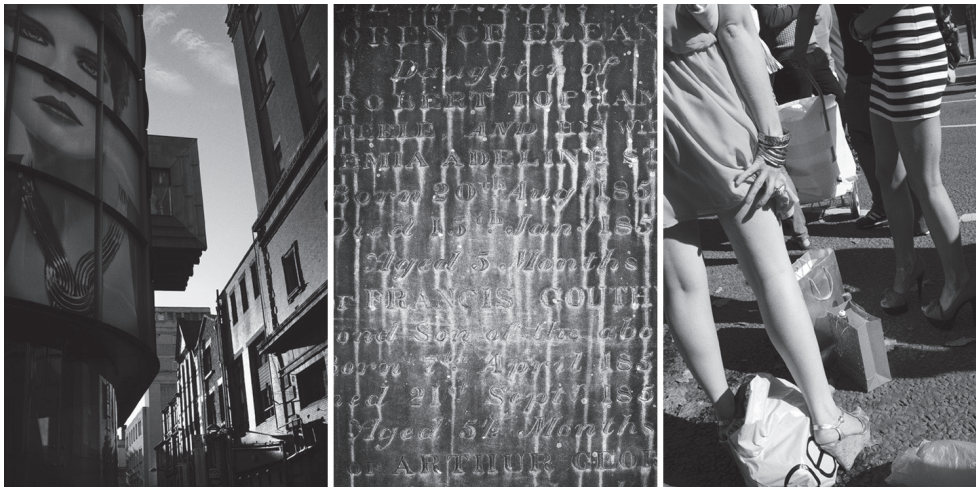 ORENCE ELEAN
Daughter of
ROBERT TOPHAM
TEELE AND HIS WI
EMIA ADELINE
Born 20th Aug 185
Died 15th Jan 185
Aged 5 Months
FRANCIS GOUTH
ond Son of the abo
orn 7th April 185
ied 21st Sept. 185
Aged 5½ Months
OF ARTHUR GEOR